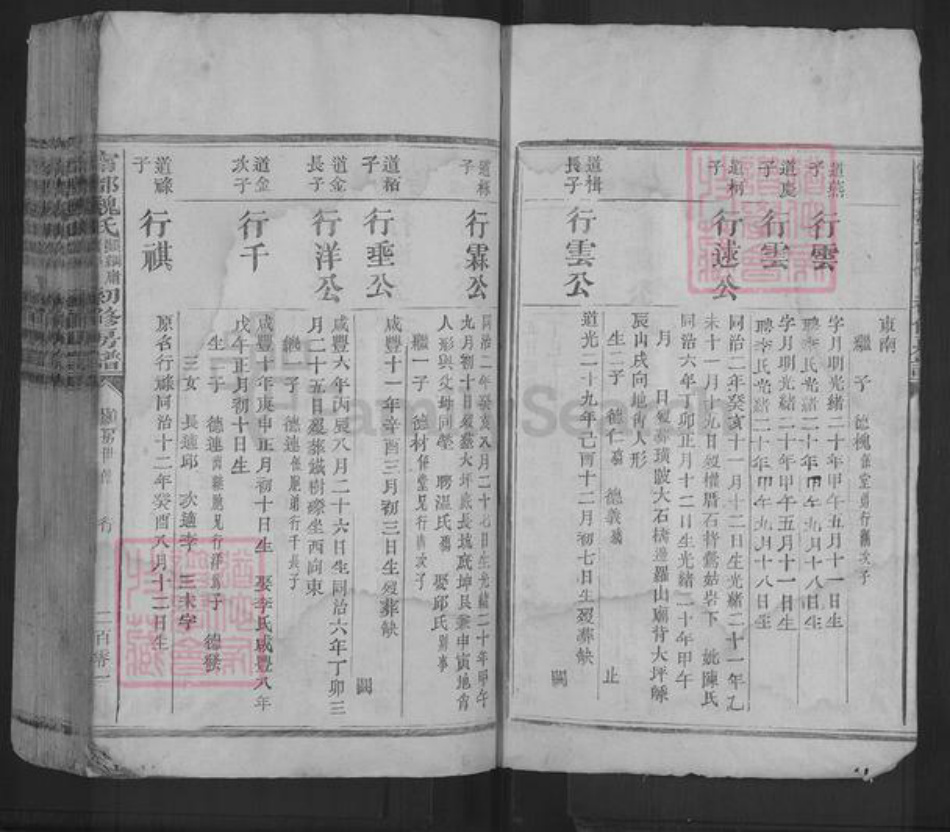 東南
繼 子 德槐係堂弟行霖次子
道
子
行雲
字月明光緒二十年甲午五月十一日生
聘李氏光緒二十年甲午九月十八日生
道慶
子
行雲
字月明光緒二十年甲午五月十一日生
聘李氏光緒二十年甲午九月十八日生
道柄
子
行遠公
同治二年癸亥十一月十二日生光緒二十一年乙
未十一月十九日歿權厝石背鶯姑岩下 妣陳氏
同治六年丁卯正月十二日生光緒二十年甲午
月 日歿葬璜陂大石橋邊羅山廟背大坪
辰山戌向地肖人形
生二子 德仁 德義 止
道楫
長子
行雲公
道光二十九年己酉十二月初七日生歿葬缺 闕
道
子
行霖公
同治二年癸亥八月二十七日生光緒二十年甲午
九月初十日歿葬大坪底長坑底坤艮兼申寅地肖
人形與父母同塋 聘溫氏 娶邱氏
繼一子 德材係堂兄行 次子
道栢
子
行埀公
咸豐十一年辛酉三月初三日生歿葬缺 闕
道金
長子
行洋公
咸豐六年丙辰八月二十六日生同治六年丁卯三
月二十五日歿葬鐵樹療坐西向東
繼一子 德連係胞弟行千長子
道金
次子
行千
咸豐十年庚申正月初十日生 娶李氏咸豐八年
戊午正月初十日生
生二子 德連出繼胞兄行洋為子 德
三女 長適邱 次適李 三未字
道祿
子
行祺
原名行祿同治十二年癸酉八月十二日生
寧都魏氏 初修房譜
二百零一
FamilySearch